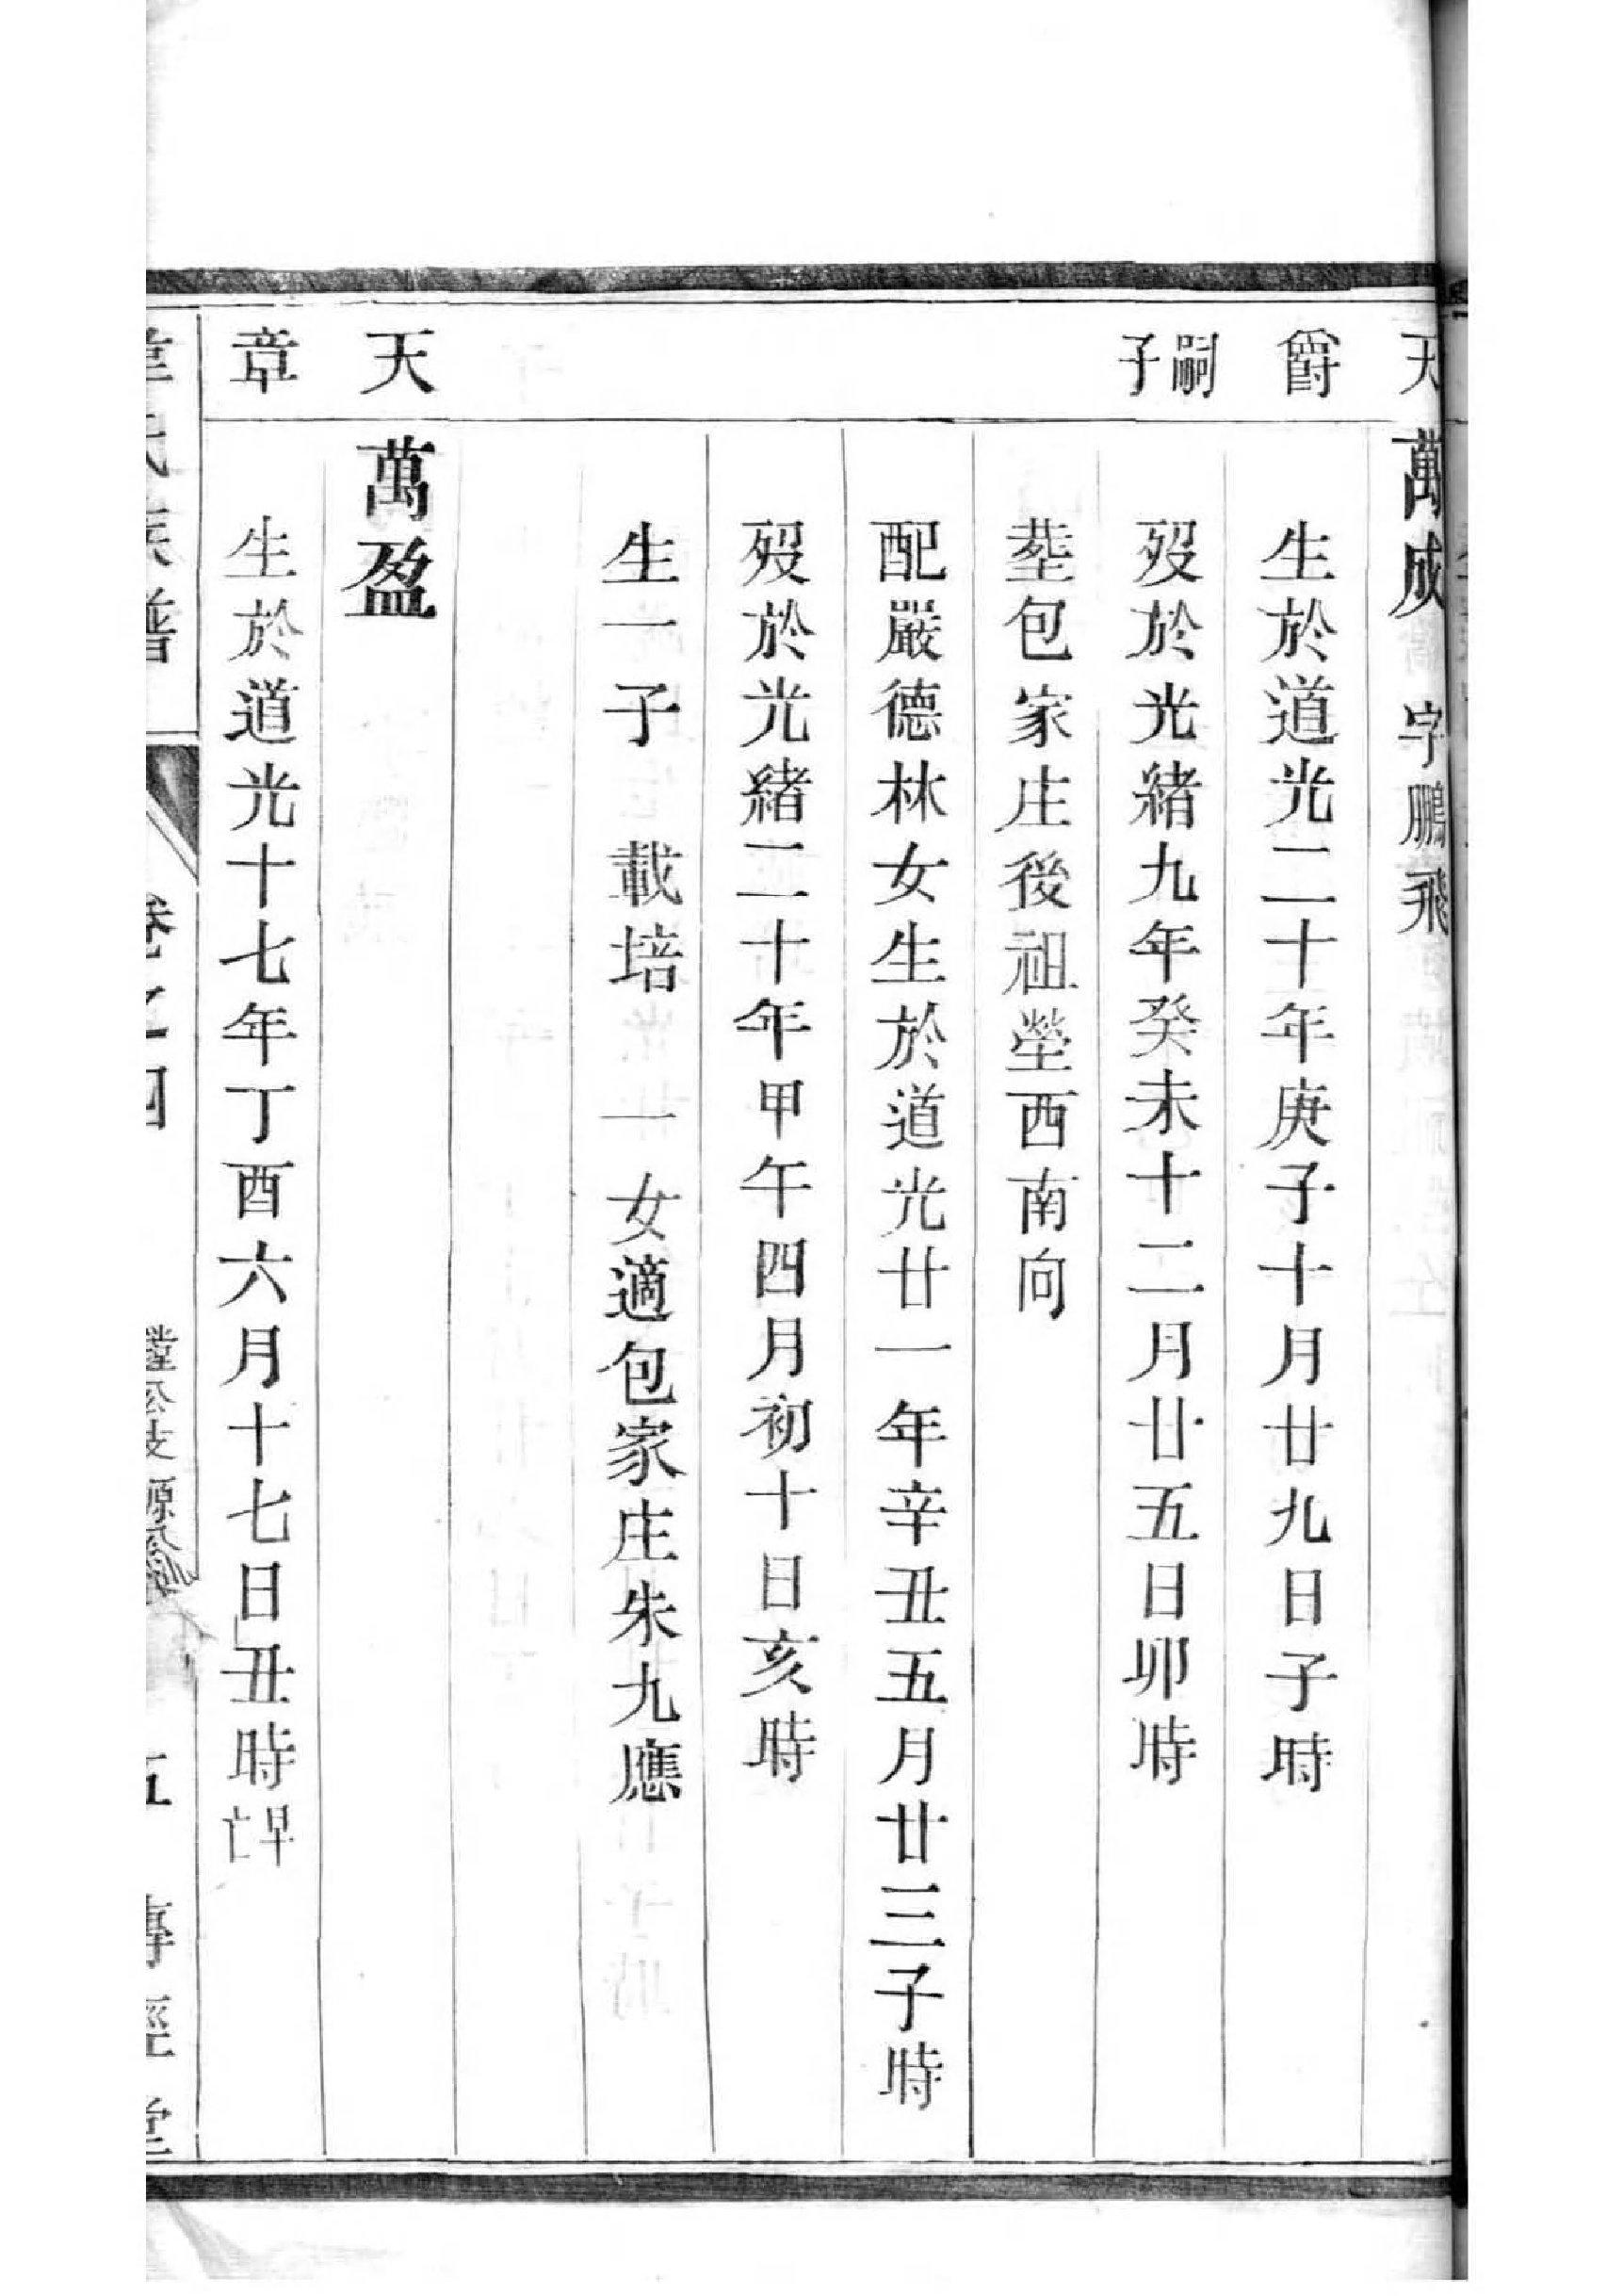 天爵嗣子
萬成 字鵬飛
生於道光二十年庚子十月廿九日子時
歿於光緒九年癸未十二月廿五日卯時
塟包家庄後祖塋西南向
配嚴德林女生於道光廿一年辛丑五月廿三子時
歿於光緒二十年甲午四月初十日亥時
生一子 載培 一女適包家庄朱九應
天章
萬盈
生於道光十七年丁酉六月十七日丑時早亡
氏族譜 卷之四 公支 源 五 傳經堂